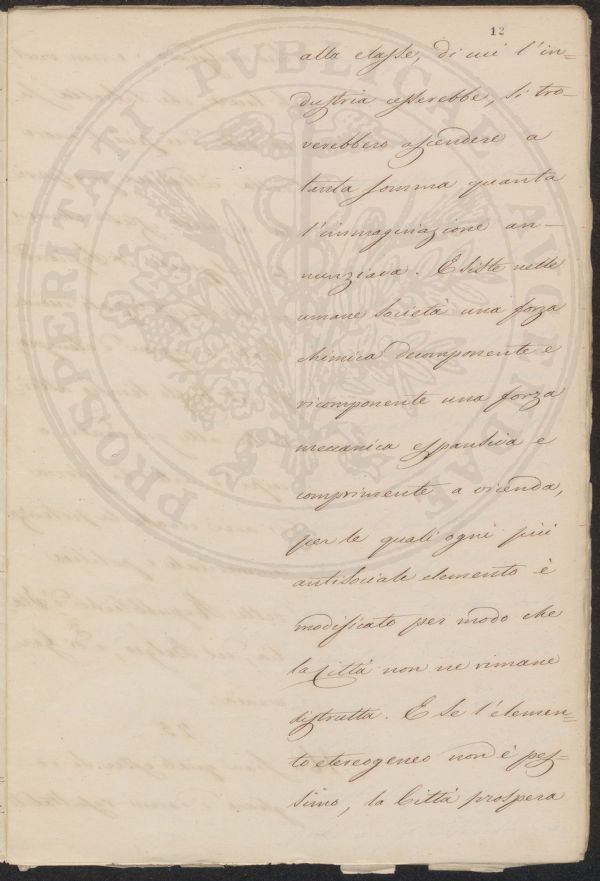 12
alla classe, di cui l'in=
dustria cesserebbe, si tro-
verebbero ascendere a
tanta somma quanta
l'immaginazione an-
nunziava. Esiste nelle
umane società una forza
chimica decomponente e
ricomponente una forza
meccanica espansiva e
comprimente a vicenda,
per le quali ogni più
antisociale elemento è
modificato per modo che
la Città non ne rimane
distrutta. E se l'elemen=
to etereogeneo non è pes=
simo, la Città prospera
PROSPERITATI PUBLICAE AUGENDAE